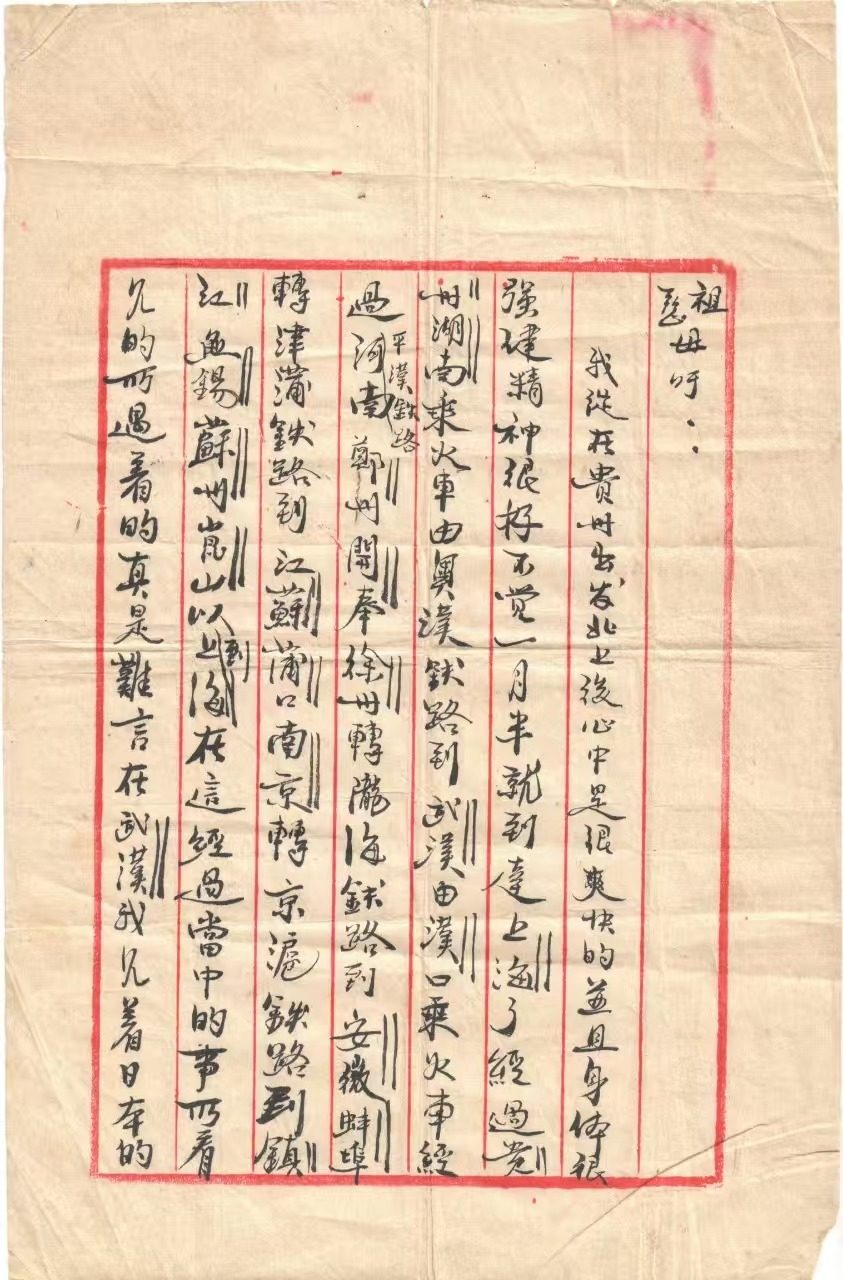 祖慈母吁：
我從在貴州出发北上後心中是很爽快的並且身体很
强健精神很好不觉一月半就到達上海了經過党
州湖南乘火車由奥漢鉄路到武漢由漢口乘火車經
平漢鉄路
過河南鄭州開奉徐州轉隴海鉄路到安徽蚌埠
轉津蒲鉄路到江蘇蒲口南京轉京滬鉄路到鎮
江無錫蘇州崑山以到上海在這經過當中的事所看
見的所遇着的真是難言在武漢我見着日本的